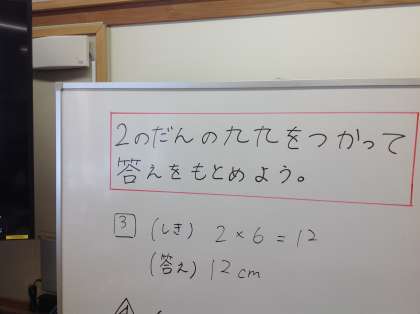 2のだんの九九をつかって
答えをもとめよう。
3 (しき) 2×6=12
(答え) 12cm